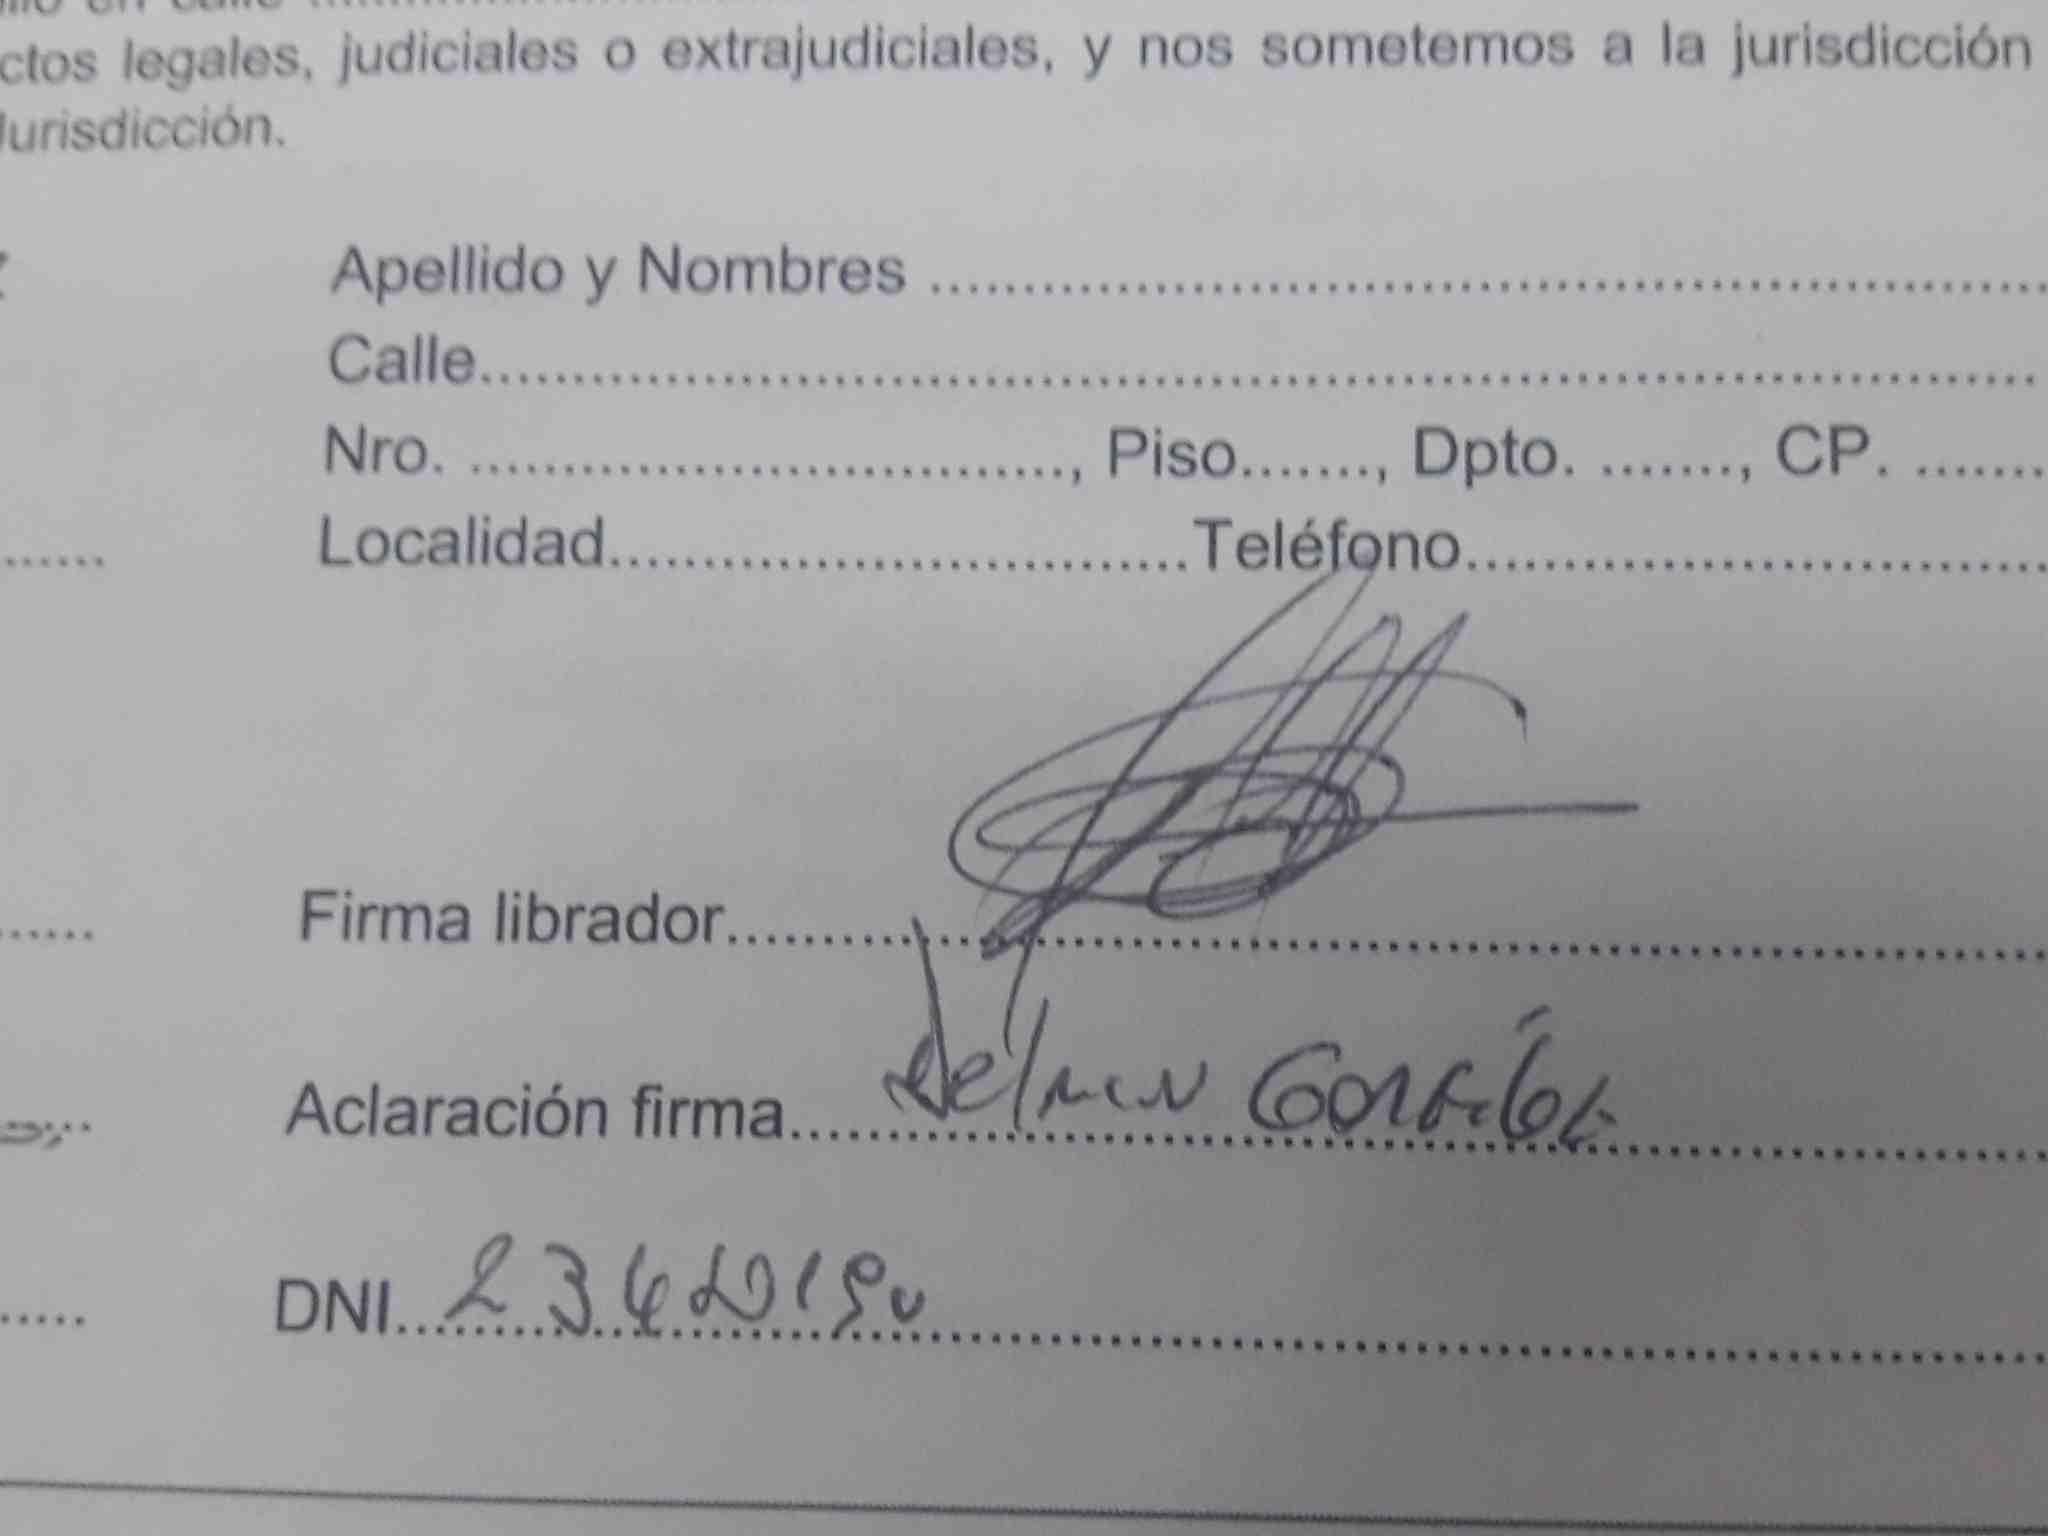 ctos legales, judiciales o extrajudiciales, y nos sometemos a la jurisdicción
Jurisdicción.
Apellido y Nombres ........................................................
Calle........................................................................
Nro. ................................, Piso......., Dpto. ......., CP. .......
Localidad................................Teléfono................................
Firma librador........................................................................
Aclaración firma........................................................................
DNI........................................................................